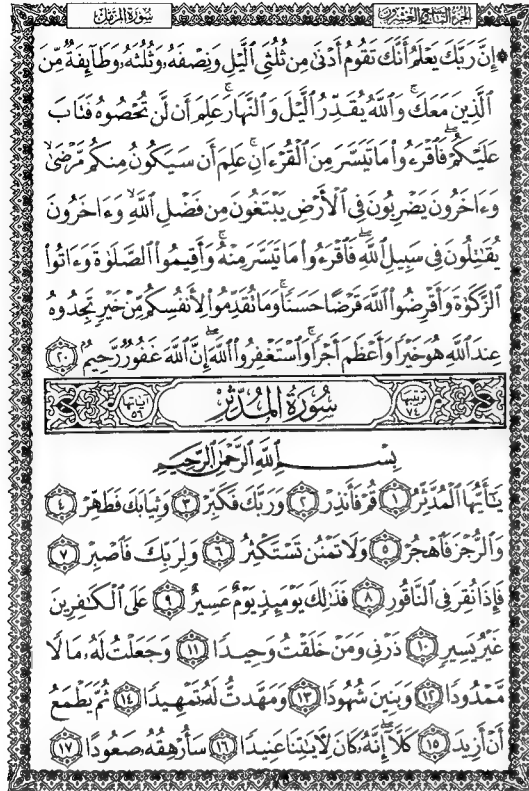 الجزء التاسع والعشرون سورة المزمل
۞ إِنَّ رَبَّكَ يَعْلَمُ أَنَّكَ تَقُومُ أَدْنَىٰ مِن ثُلُثَيِ ٱلَّيْلِ وَنِصْفَهُۥ وَثُلُثَهُۥ وَطَآئِفَةٌ مِّنَ
ٱلَّذِينَ مَعَكَ ۚ وَٱللَّهُ يُقَدِّرُ ٱلَّيْلَ وَٱلنَّهَارَ ۚ عَلِمَ أَن لَّن تُحْصُوهُ فَتَابَ
عَلَيْكُمْ ۖ فَٱقْرَءُوا۟ مَا تَيَسَّرَ مِنَ ٱلْقُرْءَانِ ۚ عَلِمَ أَن سَيَكُونُ مِنكُم مَّرْضَىٰ ۙ
وَءَاخَرُونَ يَضْرِبُونَ فِى ٱلْأَرْضِ يَبْتَغُونَ مِن فَضْلِ ٱللَّهِ ۙ وَءَاخَرُونَ
يُقَٰتِلُونَ فِى سَبِيلِ ٱللَّهِ ۖ فَٱقْرَءُوا۟ مَا تَيَسَّرَ مِنْهُ ۚ وَأَقِيمُوا۟ ٱلصَّلَوٰةَ وَءَاتُوا۟
ٱلزَّكَوٰةَ وَأَقْرِضُوا۟ ٱللَّهَ قَرْضًا حَسَنًا ۚ وَمَا تُقَدِّمُوا۟ لِأَنفُسِكُم مِّنْ خَيْرٍ تَجِدُوهُ
عِندَ ٱللَّهِ هُوَ خَيْرًا وَأَعْظَمَ أَجْرًا ۚ وَٱسْتَغْفِرُوا۟ ٱللَّهَ ۖ إِنَّ ٱللَّهَ غَفُورٌ رَّحِيمٌۢ ٢٠
ترتيبها ٧٤ سُورَةُ المُدَّثِّر آياتها ٥٦
بِسْمِ ٱللَّهِ ٱلرَّحْمَٰنِ ٱلرَّحِيمِ
يَٰٓأَيُّهَا ٱلْمُدَّثِّرُ ١ قُمْ فَأَنذِرْ ٢ وَرَبَّكَ فَكَبِّرْ ٣ وَثِيَابَكَ فَطَهِّرْ ٤
وَٱلرُّجْزَ فَٱهْجُرْ ٥ وَلَا تَمْنُن تَسْتَكْثِرُ ٦ وَلِرَبِّكَ فَٱصْبِرْ ٧
فَإِذَا نُقِرَ فِى ٱلنَّاقُورِ ٨ فَذَٰلِكَ يَوْمَئِذٍ يَوْمٌ عَسِيرٌ ٩ عَلَى ٱلْكَٰفِرِينَ
غَيْرُ يَسِيرٍ ١٠ ذَرْنِى وَمَنْ خَلَقْتُ وَحِيدًا ١١ وَجَعَلْتُ لَهُۥ مَالًا
مَّمْدُودًا ١٢ وَبَنِينَ شُهُودًا ١٣ وَمَهَّدتُّ لَهُۥ تَمْهِيدًا ١٤ ثُمَّ يَطْمَعُ
أَنْ أَزِيدَ ١٥ كَلَّآ ۖ إِنَّهُۥ كَانَ لِءَايَٰتِنَا عَنِيدًا ١٦ سَأُرْهِقُهُۥ صَعُودًا ١٧